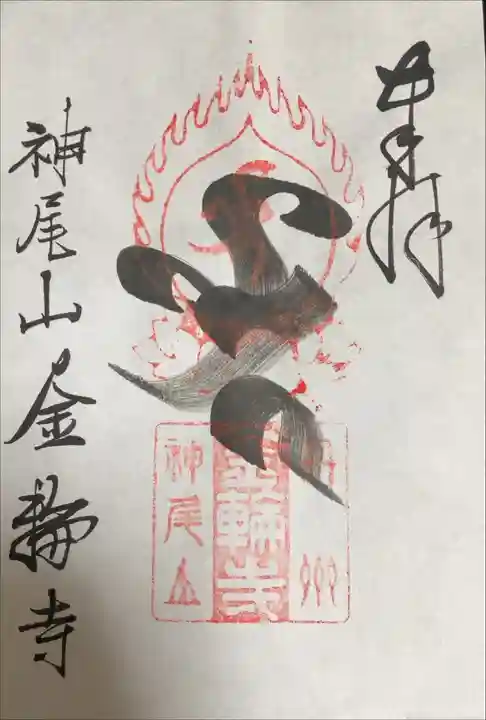 奉拝
神尾山金輪寺
丹州
金輪寺
神尾山